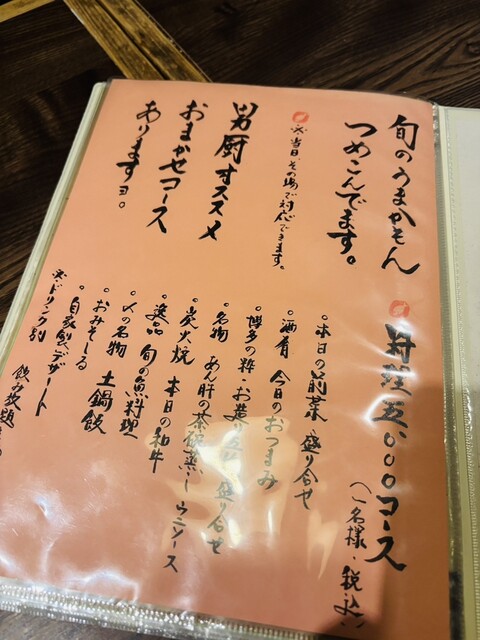 旬のうまかもん
つめこんでます。
※当日、その場で対応できます。
男厨オススメ
おまかせコース
ありますヨ。
料理五,〇〇〇コース
(一名様・税込)
本日の前菜 盛り合せ
酒肴 今日のおつまみ
博多の粋・お造り 盛り合せ
名物 あん肝の茶碗蒸し ウニソース
炭火焼 本日の和牛
逸品 旬の魚料理
〆の名物 土鍋飯
おみそしる
自家製デザート
※ドリンク別 飲み放題